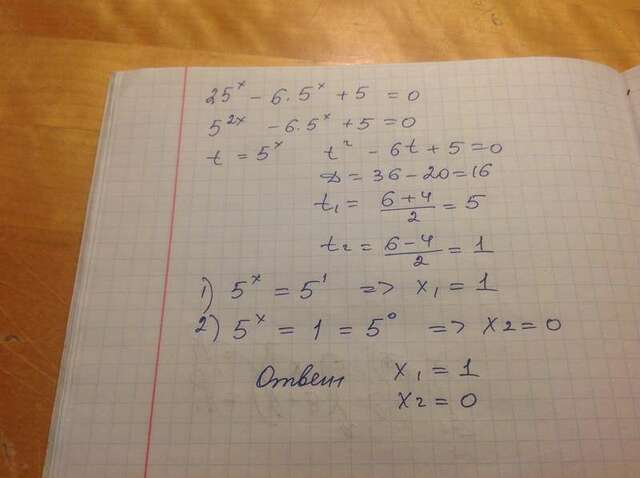 25ˣ - 6·5ˣ + 5 = 0
5²ˣ - 6·5ˣ + 5 = 0
t = 5ˣ t² - 6t + 5 = 0
D = 36 - 20 = 16
t₁ = (6+4)/2 = 5
t₂ = (6-4)/2 = 1
1) 5ˣ = 5¹ => x₁ = 1
2) 5ˣ = 1 = 5⁰ => x₂ = 0
Ответ x₁ = 1
x₂ = 0